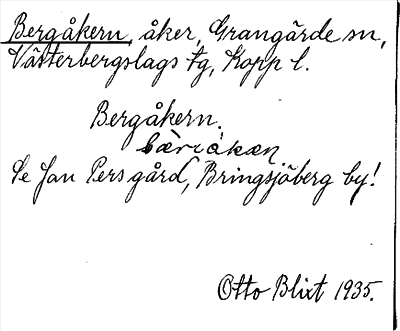 Bergåkern, åker, Grangärde sn,
Västerbergslags tg, Kopp l.
Bergåkern.
Se Jan Persgård, Bringsjöberg by!
Otto Blixt 1935.